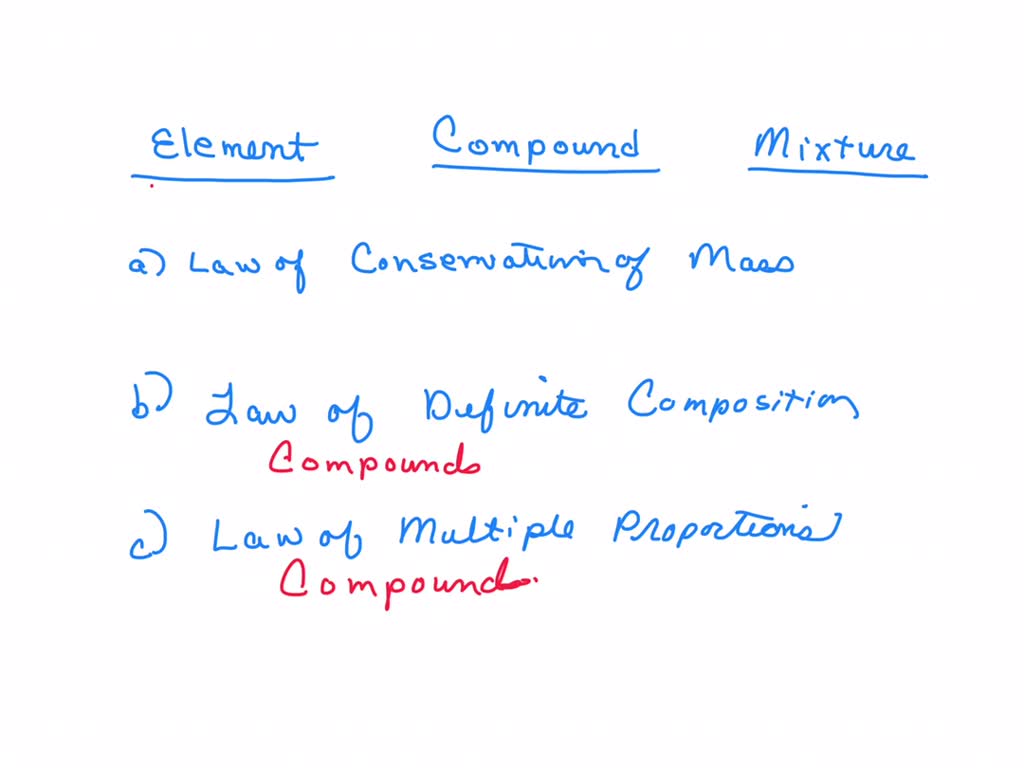 Element Compound Mixture
a) Law of Conservation of Mass
b) Law of Definite Composition
Compounds
c) Law of Multiple Proportions
Compounds.